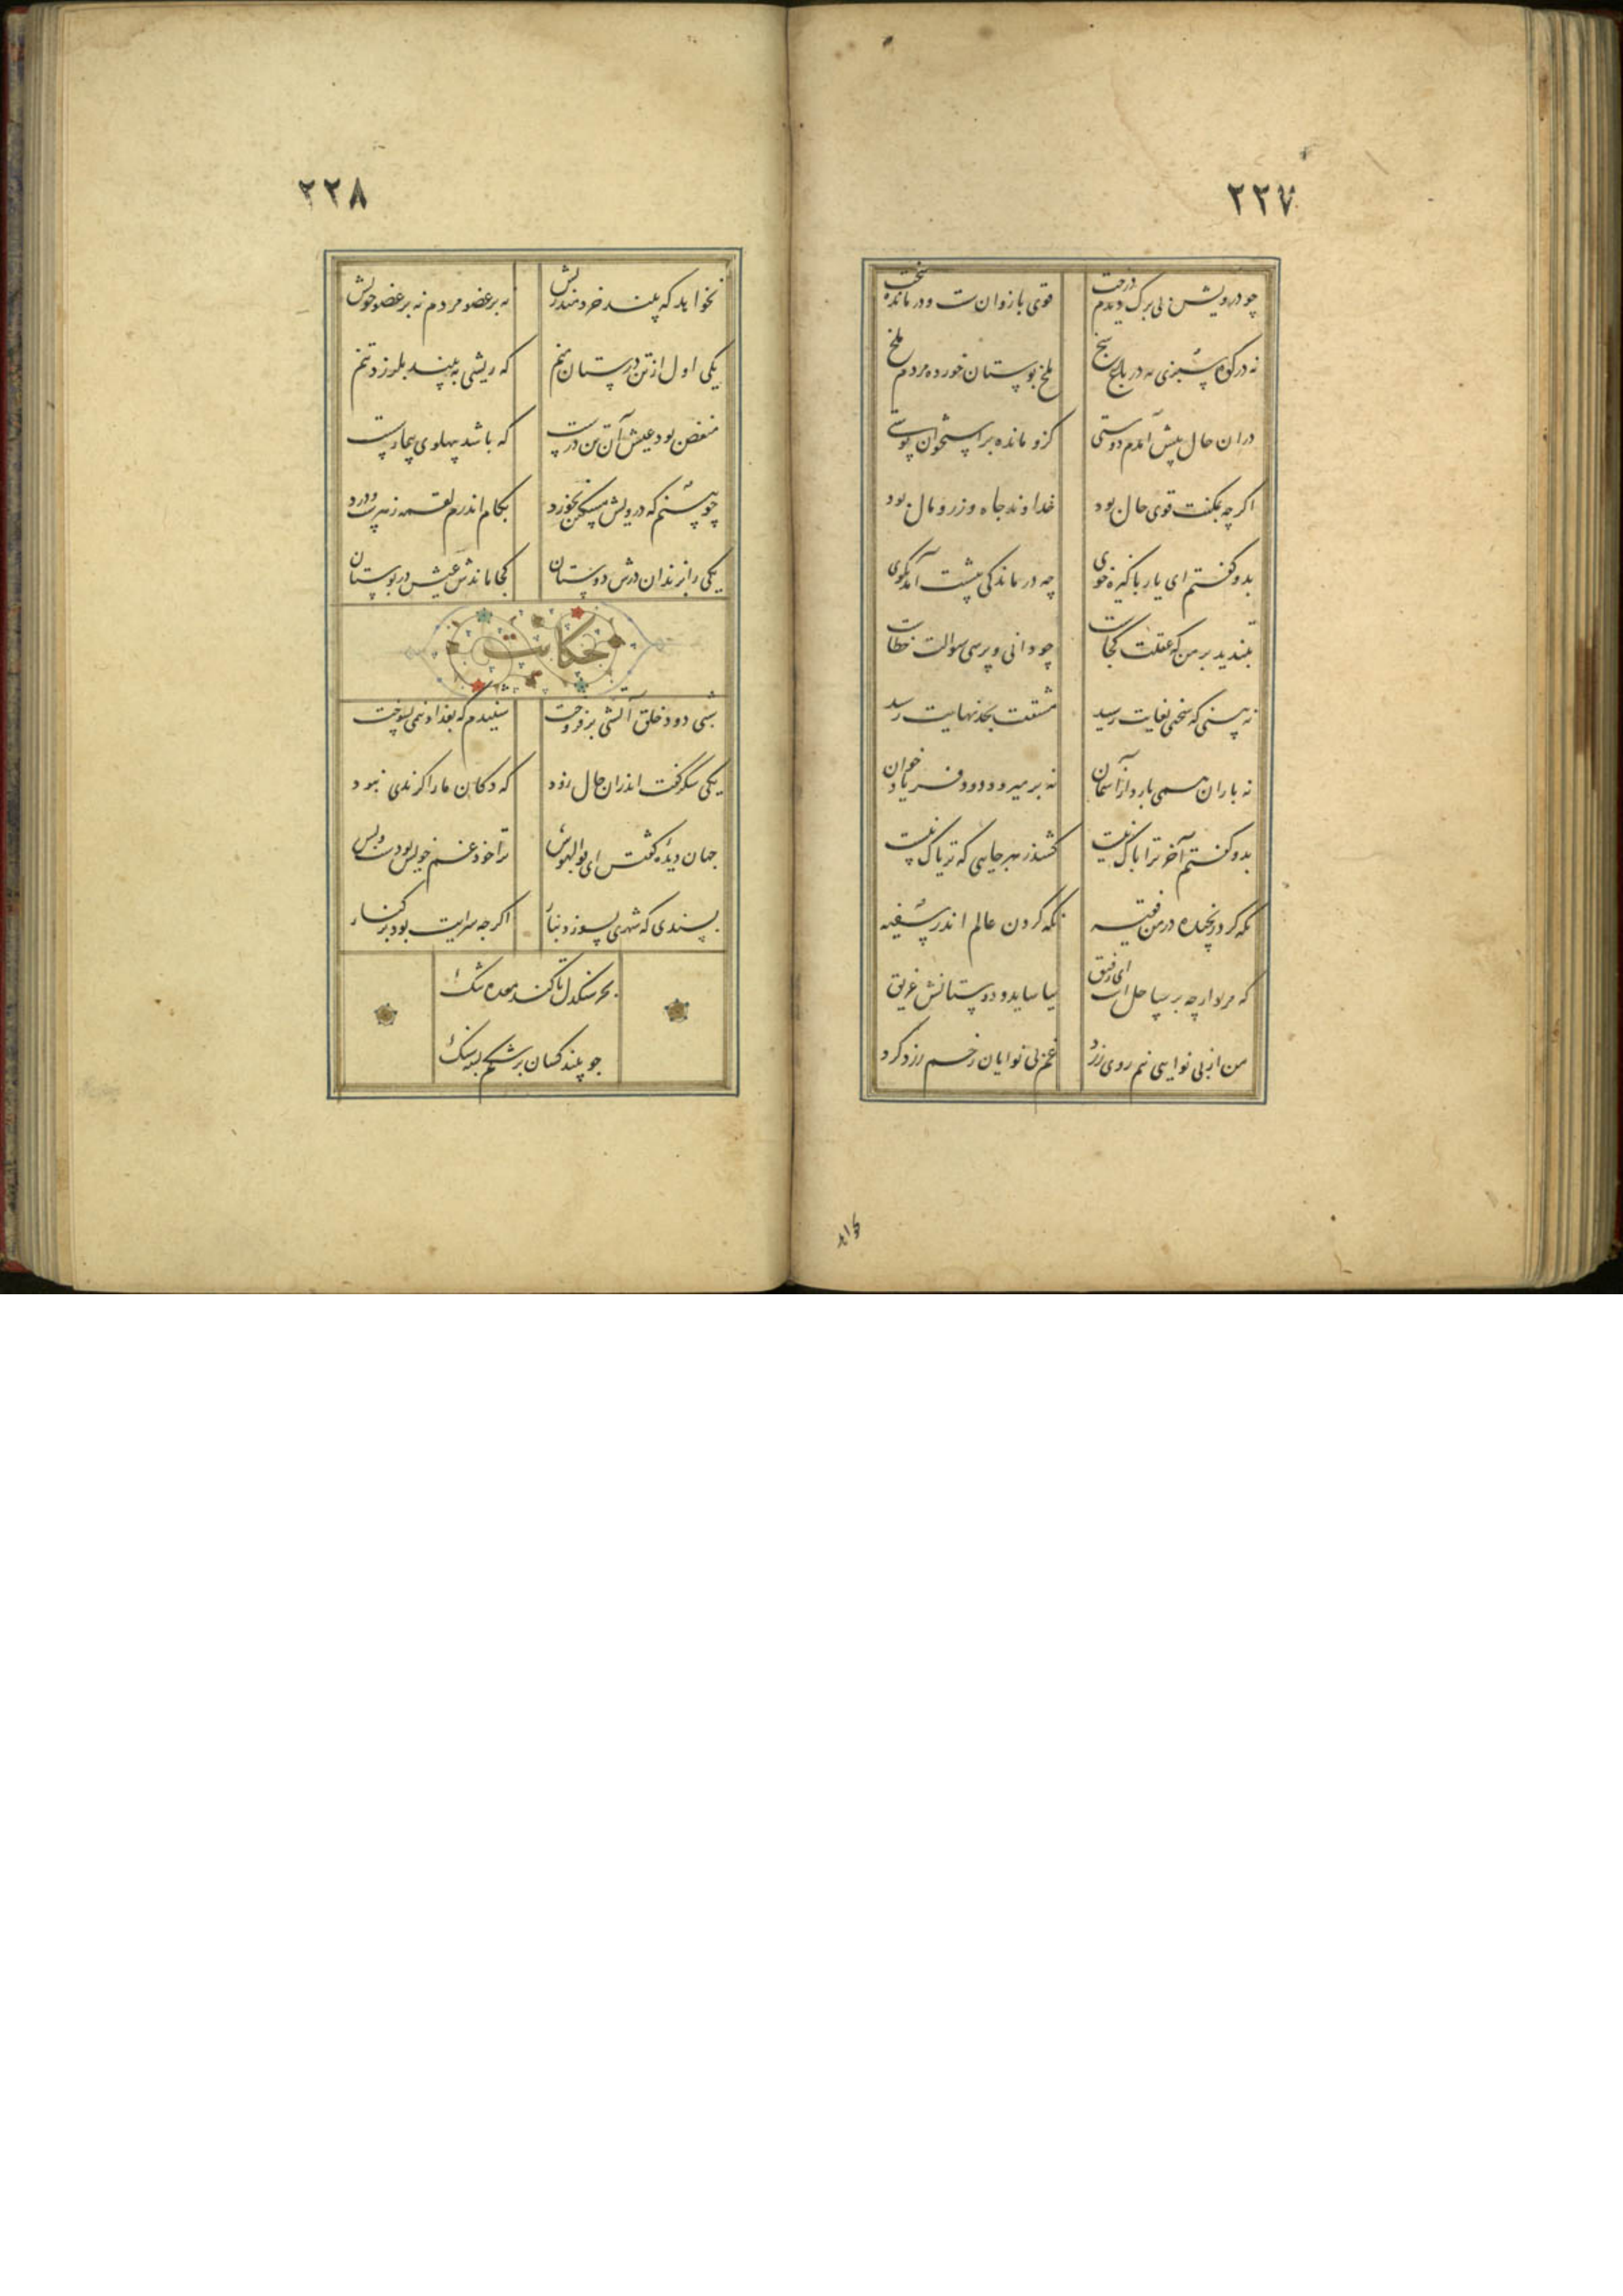 ۲۲۷
چو درویش بی برک دیدم درخت
قوی بازوان سست و درمانده سخت
نه در کوه سبزی نه در باغ شخ
ملخ بوستان خورده مردم ملخ
دران حال پیش آمدم دوستی
کزو مانده بر استخوان پوستی
اگرچه بمکنت قوی حال بود
خداوند جاه و زر و مال بود
بدو گفتم ای یار پاکیزه خوی
چه درماندگی پیشت آمد بگوی
بتندید بر من که عقلت کجاست
چو دانی و پرسی سوالت خطاست
نه بینی که سختی بغایت رسید
مشقت بحد نهایت رسید
نه باران همی بارد از آسمان
نه بر میرود دود فریاد خوان
بدو گفتم آخر ترا باک نیست
کشد زهر جایی که تریاک نیست
نگه کرد رنجیده در من فقیه
نگه کردن عالم اندر سفیه
که مرد ارچه بر ساحل است ای رفیق
نیاساید و دوستانش غریق
من از بی نوایی نیم روی زرد
غم بی نوایان رخم زرد کرد
۲۲۸
نخواهد که بیند خردمند ریش
نه بر عضو مردم نه بر عضو خویش
یکی اول از تن درستان منم
که ریشی به بینم بلرزد تنم
منغص بود عیش آن تن درست
که باشد پهلوی بیمار سست
چو بینم که درویش مسکین نخورد
بکام اندرم لقمه زهرست و درد
یکی را بزندان درش دوستان
کجا ماندش عیش در بوستان
حکایت
شبی دود خلق آتشی برفروخت
شنیدم که بغداد نیمی بسوخت
یکی شکر گفت اندران حال زود
که دکان ما را گزندی نبود
جهان دیده گفتش ای بوالهوس
ترا خود غم خویش بودست و بس
پسندی که شهری بسوزد بنار
اگرچه سرایت بود بر کنار
بجز سنگدل تا کند معده تنگ
چو بیند کسان بر شکم بسته سنگ